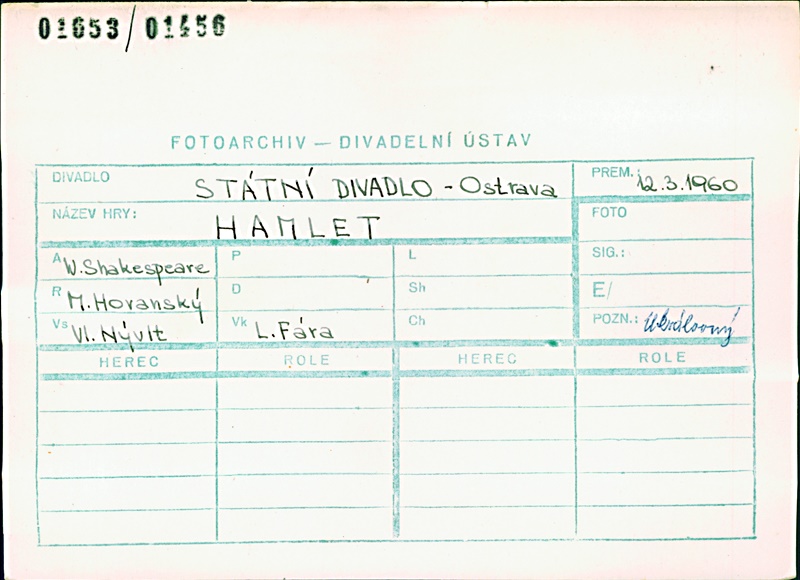 01653/01456
FOTOARCHIV — DIVADELNÍ ÚSTAV
DIVADLO STÁTNÍ DIVADLO - Ostrava
PREM.: 12.3.1960
NÁZEV HRY: HAMLET
FOTO
A W. Shakespeare P L
SIG.:
R M. Horanský D Sh
E/
Vs Vl. Nývlt Vk L. Fára Ch
POZN.:
HEREC ROLE HEREC ROLE